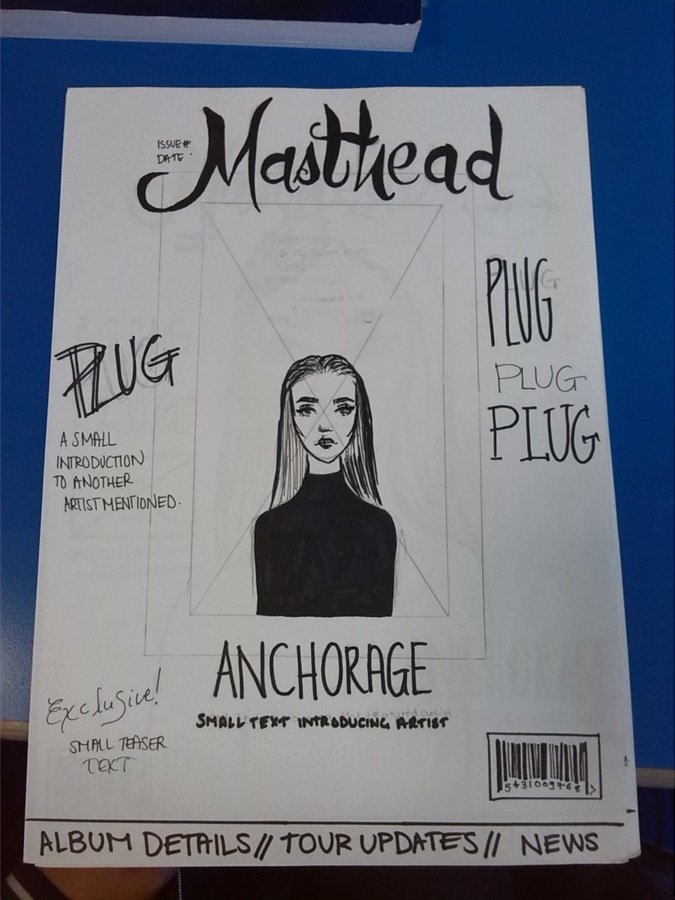 ISSUE#
DATE
Masthead
PLUG
PLUG
PLUG
PLUG
A SMALL
INTRODUCTION
TO ANOTHER
ARTIST MENTIONED.
ANCHORAGE
SMALL TEXT INTRODUCING ARTIST
Exclusive!
SMALL TEASER
TEXT
5431009768
ALBUM DETAILS // TOUR UPDATES // NEWS